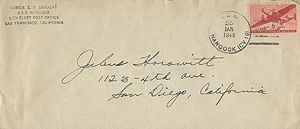 COMDR. E. R. SANDERS
U.S.S. HANCOCK
C/O FLEET POST OFFICE
SAN FRANCISCO, CALIFORNIA
U.S.S.
25
JAN
1946
HANCOCK (CV 19)
Julius Horowitt
1125-4th ave.
San Diego, California